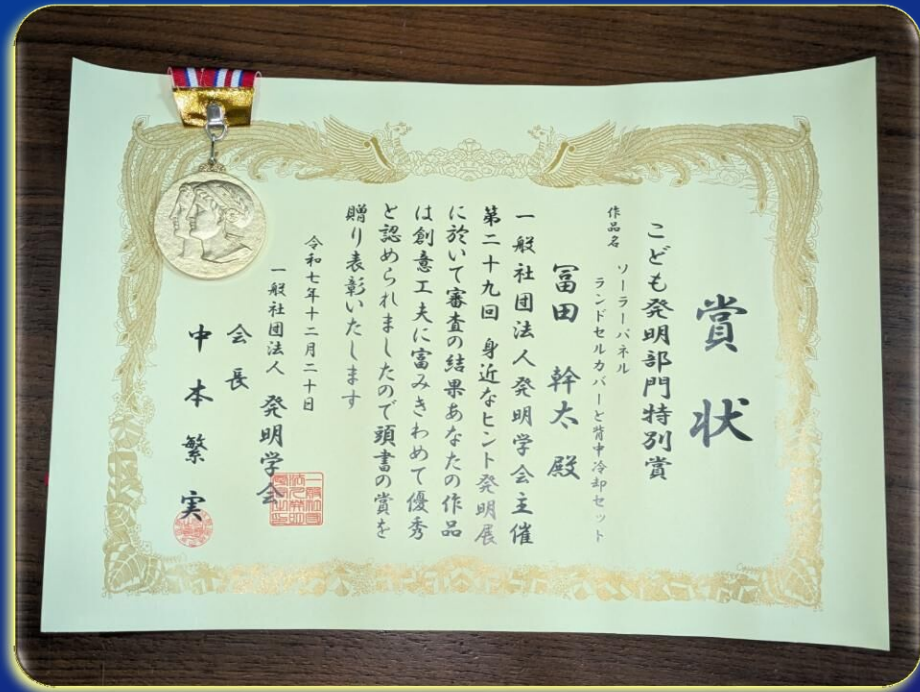 賞状
こども発明部門特別賞
作品名 ソーラーパネル
ランドセルカバーと背中冷却セット
冨田 幹太 殿
一般社団法人発明学会主催
第二十九回 身近なヒント発明展
に於いて審査の結果あなたの作品
は創意工夫に富みきわめて優秀
と認められましたので頭書の賞を
贈り表彰いたします
令和七年十二月二十日
一般社団法人 発明学会
会長
中本繁実